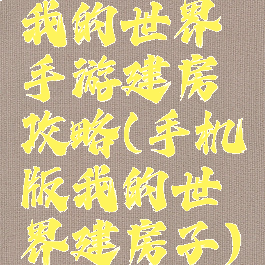 我的世界
手游建房
攻略(手机
版我的世
界建房子)